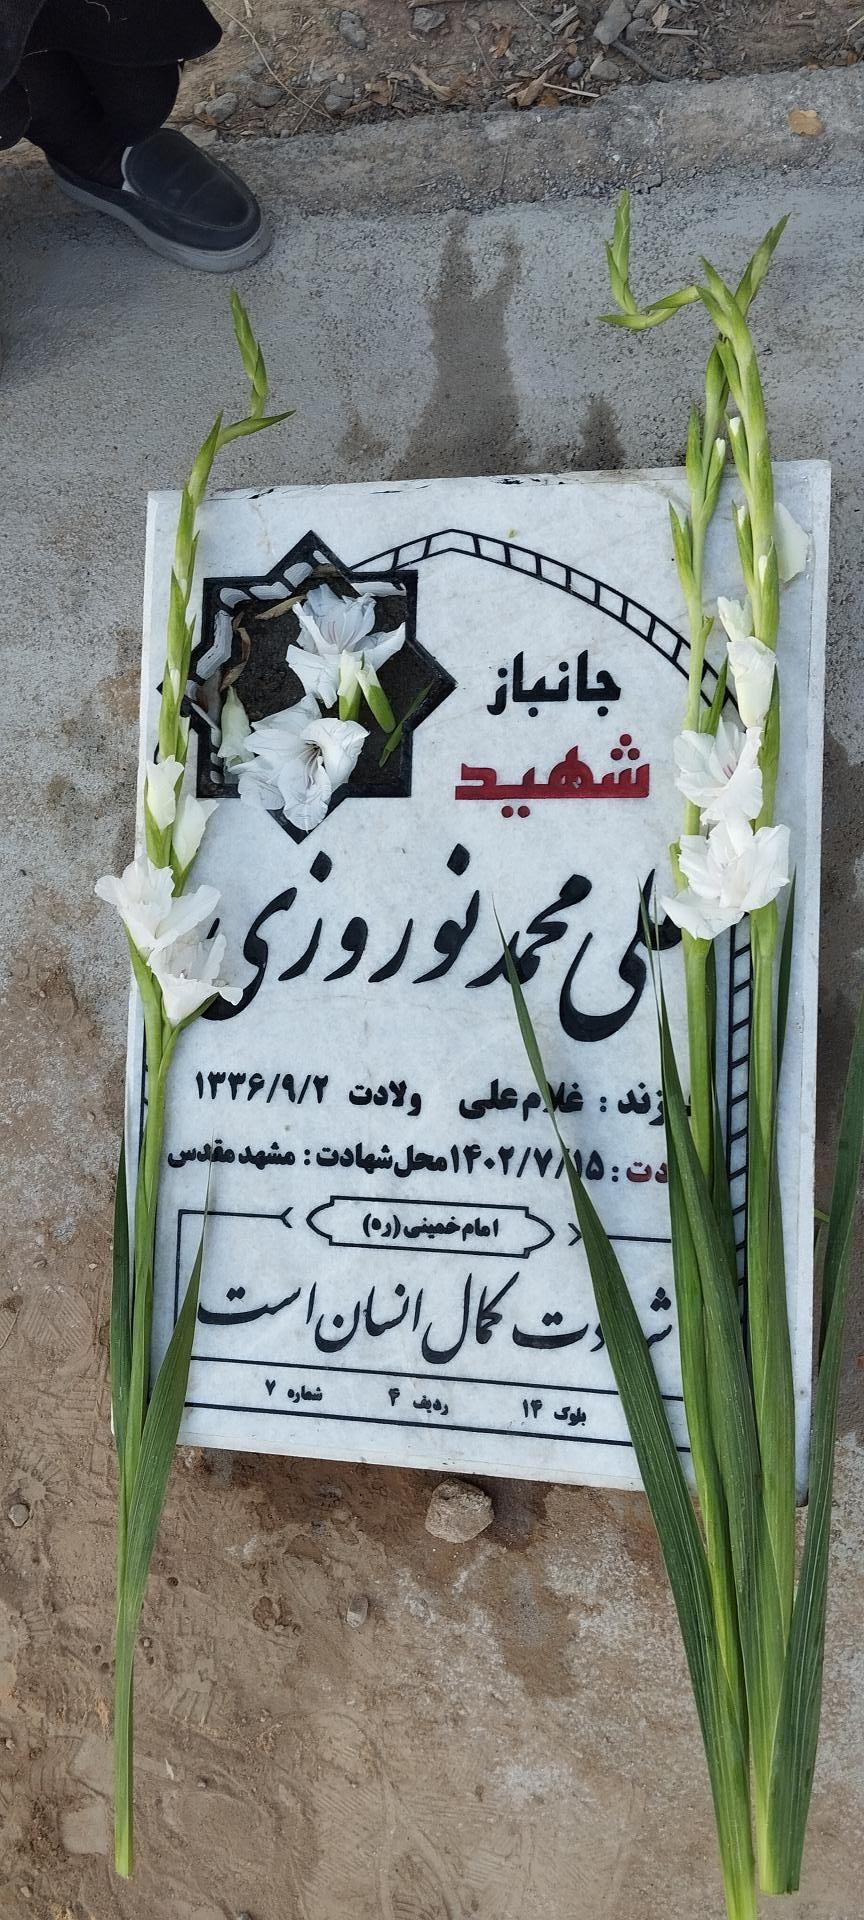 جانباز
شهید
علی محمد نوروزی
فرزند : غلامعلی ولادت ۱۳۳۶/۹/۲
شهادت : ۱۴۰۲/۷/۱۵ محل شهادت : مشهد مقدس
امام خمینی (ره)
شهادت کمال انسان است
بلوک ۱۴ ردیف ۴ شماره ۷